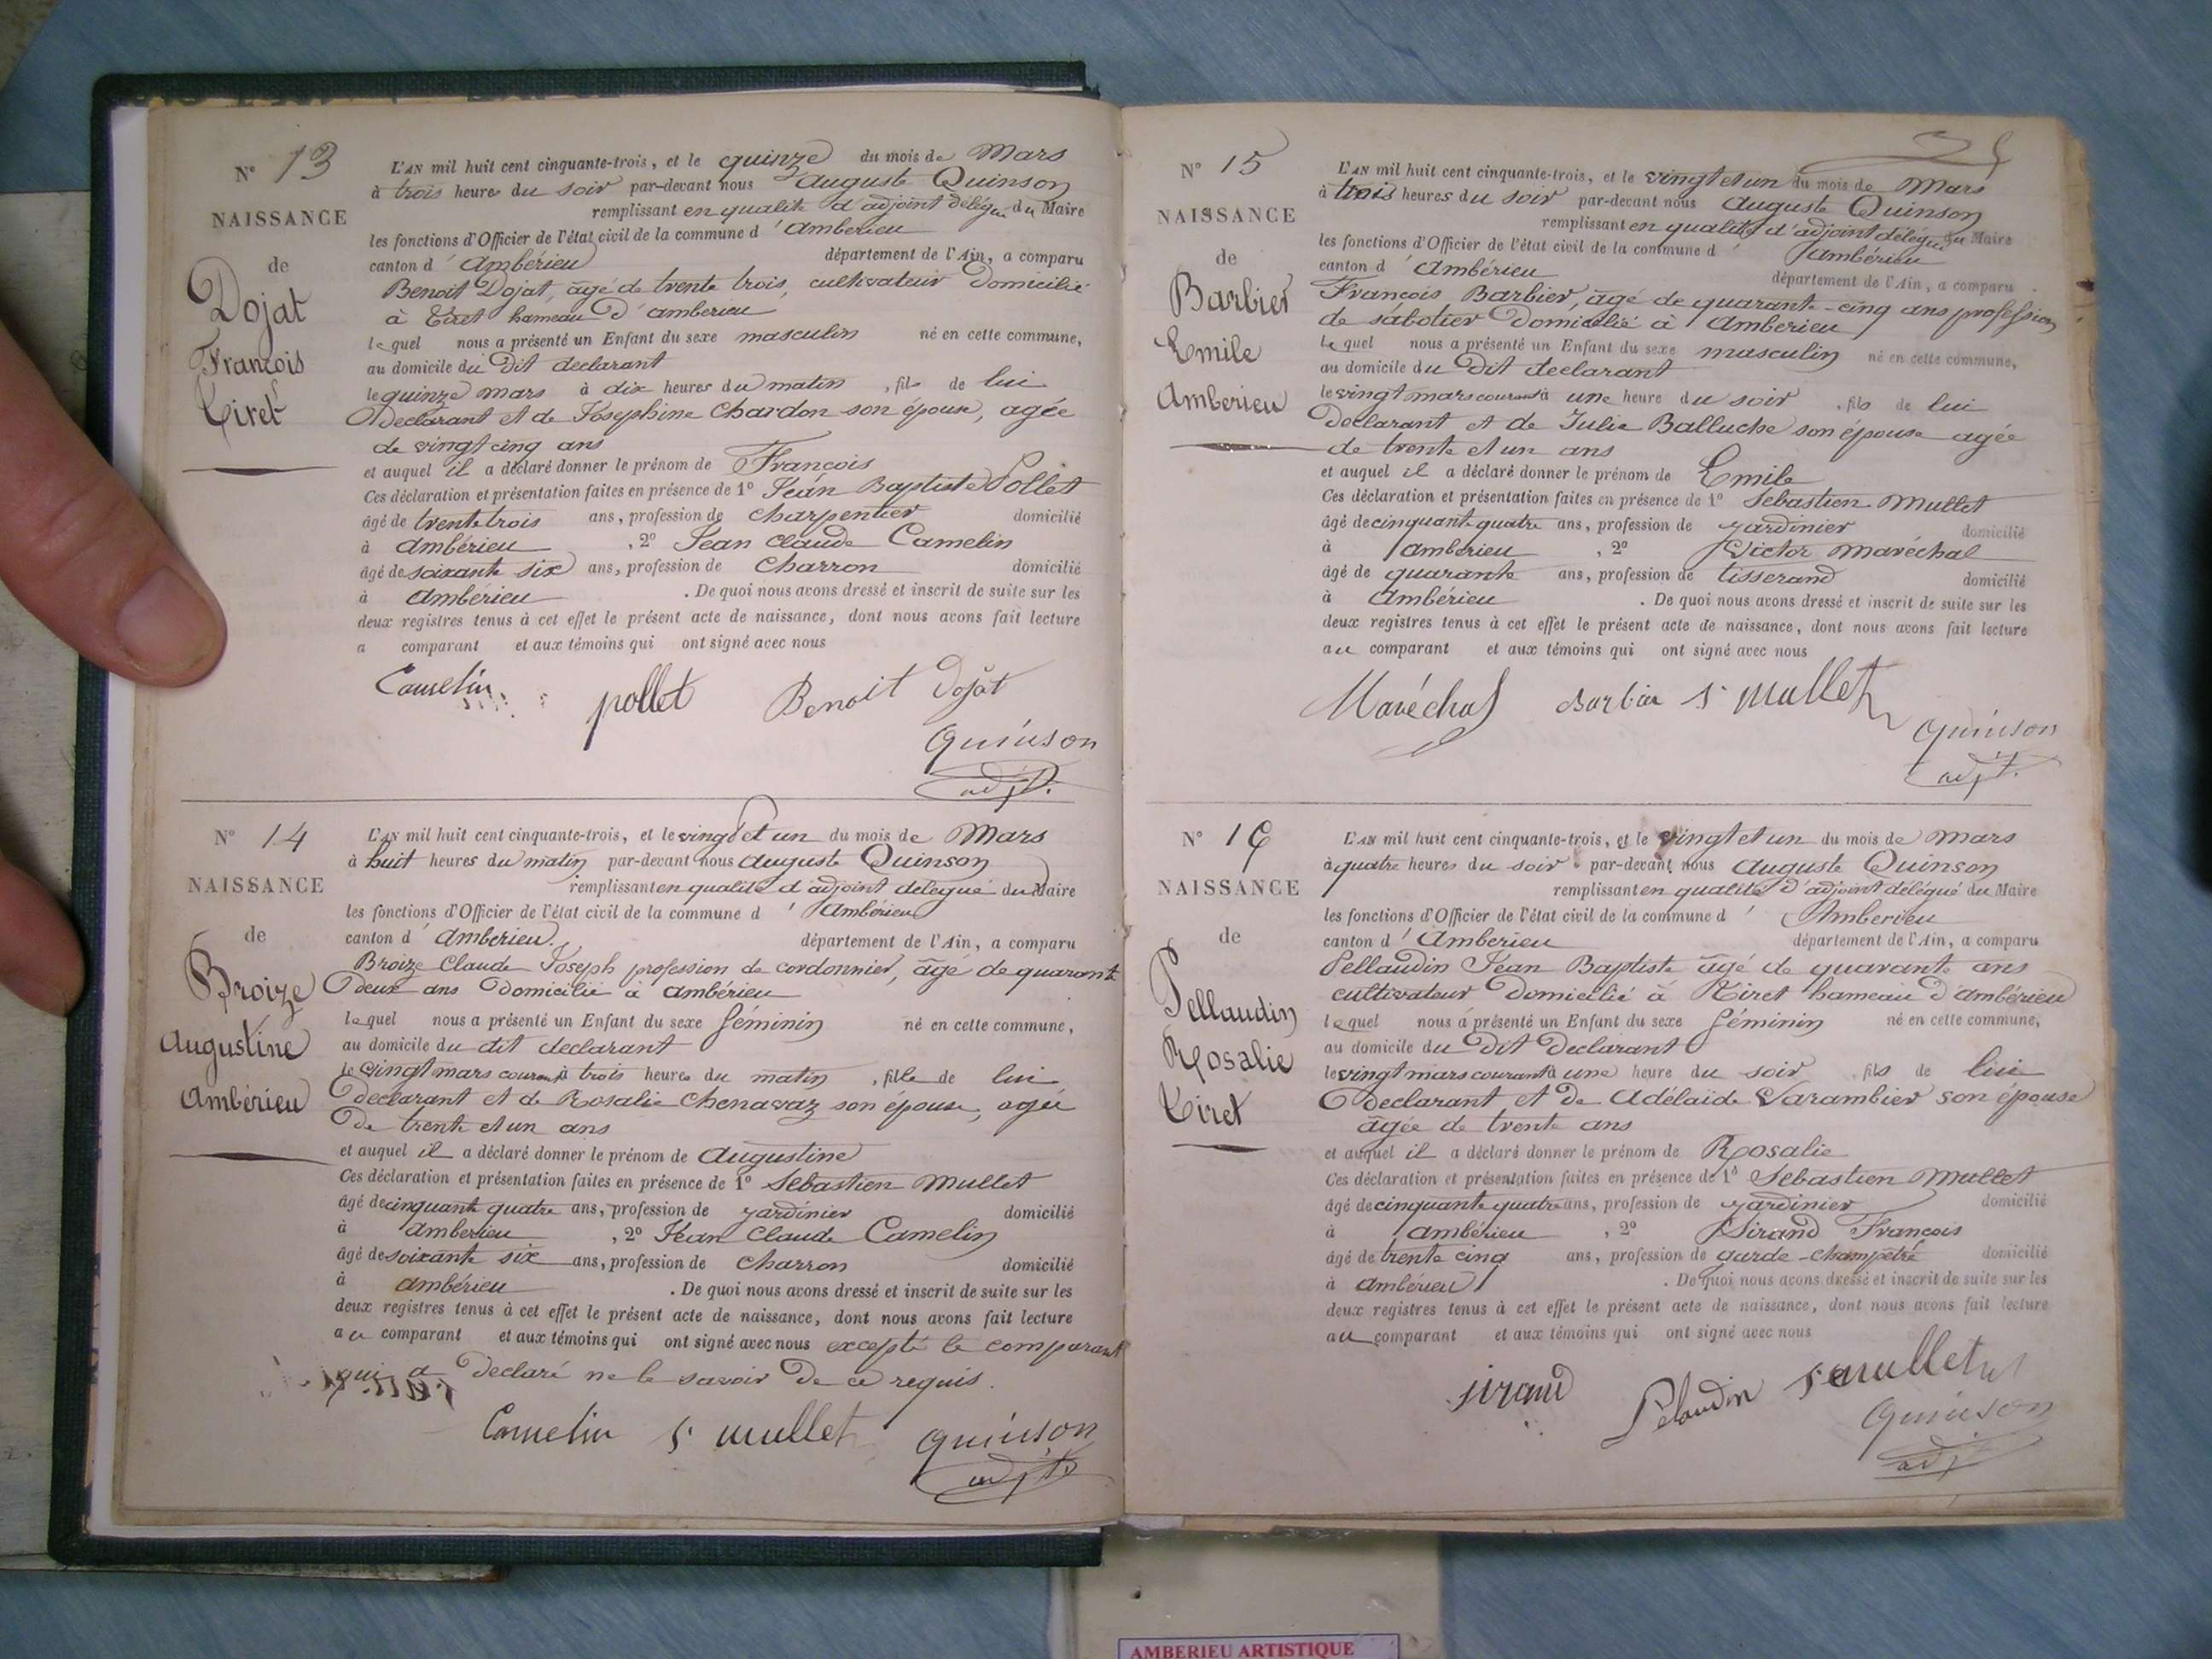 N° 13
NAISSANCE
de
Dojat
François
Tiret
L'AN mil huit cent cinquante-trois, et le quinze du mois de Mars
à trois heures du soir par-devant nous Auguste Quinson
remplissant en qualité d'adjoint délégué du Maire
les fonctions d'Officier de l'état civil de la commune d'Amberieu
canton d'Ambérieu département de l'Ain, a comparu
Benoit Dojat, âgé de trente trois, cultivateur Domicilié
à Tiret hameau d'amberieu
lequel nous a présenté un Enfant du sexe masculin né en cette commune,
au domicile du Dit declarant
le quinze mars à dix heures du matin, fils de lui
Declarant et de Josephine Chardon son épouse, agée
de vingt cinq ans
et auquel il a déclaré donner le prénom de François
Ces déclaration et présentation faites en présence de 1° Jean Baptiste Pollet
âgé de trente trois ans, profession de charpentier domicilié
à Ambérieu, 2° Jean Claude Camelin
âgé de soixante six ans, profession de Charron domicilié
à Ambérieu. De quoi nous avons dressé et inscrit de suite sur les
deux registres tenus à cet effet le présent acte de naissance, dont nous avons fait lecture
a comparant et aux témoins qui ont signé avec nous
Camelin pollet Benoit Dojat
quinson
adjt.
N° 14
NAISSANCE
de
Broize
Augustine
Ambérieu
L'AN mil huit cent cinquante-trois, et le vingt et un du mois de Mars
à huit heures du matin par-devant nous Auguste Quinson
remplissant en qualité d'adjoint délégué du Maire
les fonctions d'Officier de l'état civil de la commune d'Ambérieu
canton d'Amberieu. département de l'Ain, a comparu
Broize Claude Joseph profession de cordonnier, âgé de quarante
deux ans Domicilié à Ambérieu
lequel nous a présenté un Enfant du sexe féminin né en cette commune,
au domicile du dit declarant
le vingt mars courant à trois heures du matin, fille de lui
Declarant et de Rosalie Chenavaz son épouse, agée
De trente et un ans
et auquel il a déclaré donner le prénom de Augustine
Ces déclaration et présentation faites en présence de 1° Sebastien Mullet
âgé de cinquante quatre ans, profession de jardinier domicilié
à Amberieu, 2° Jean Claude Camelin
âgé de soixante six ans, profession de charron domicilié
à Ambérieu. De quoi nous avons dressé et inscrit de suite sur les
deux registres tenus à cet effet le présent acte de naissance, dont nous avons fait lecture
au comparant et aux témoins qui ont signé avec nous excepté le comparant
qui a Declaré ne le savoir De ce requis.
Camelin S. mullet quinson
adjt.
N° 15
NAISSANCE
de
Barbier
Emile
Amberieu
L'AN mil huit cent cinquante-trois, et le vingt et un du mois de Mars
à trois heures du soir par-devant nous Auguste Quinson
remplissant en qualité d'adjoint délégué du Maire
les fonctions d'Officier de l'état civil de la commune d'Ambérieu
canton d'Ambérieu département de l'Ain, a comparu
François Barbier, âgé de quarante-cinq ans profession
de sabotier Domicilié à Amberieu
lequel nous a présenté un Enfant du sexe masculin né en cette commune,
au domicile du Dit declarant
le vingt mars courant à une heure du soir, fils de lui
Declarant et de Julie Balluche son épouse agée
de trente et un ans
et auquel il a déclaré donner le prénom de Emile
Ces déclaration et présentation faites en présence de 1° Sebastien Mullet
âgé de cinquante quatre ans, profession de jardinier domicilié
à Ambérieu, 2° Victor Maréchal
âgé de quarante ans, profession de tisserand domicilié
à Ambérieu. De quoi nous avons dressé et inscrit de suite sur les
deux registres tenus à cet effet le présent acte de naissance, dont nous avons fait lecture
au comparant et aux témoins qui ont signé avec nous
Maréchal Barbier S. mullet
quinson
adjt.
N° 16
NAISSANCE
de
Pellaudin
Rosalie
Tiret
L'AN mil huit cent cinquante-trois, et le vingt et un du mois de Mars
à quatre heures du soir par-devant nous Auguste Quinson
remplissant en qualité d'adjoint délégué du Maire
les fonctions d'Officier de l'état civil de la commune d'Amberieu
canton d'Amberieu département de l'Ain, a comparu
Pellaudin Jean Baptiste âgé de quarante ans
cultivateur Domicilié à Tiret hameau d'ambérieu
lequel nous a présenté un Enfant du sexe féminin né en cette commune,
au domicile du Dit Declarant
le vingt mars courant à une heure du soir, fils de lui
Declarant et De Adélaide Varambier son épouse
âgée de trente ans
et auquel il a déclaré donner le prénom de Rosalie
Ces déclaration et présentation faites en présence de 1° Sebastien Mullet
âgé de cinquante quatre ans, profession de jardinier domicilié
à Ambérieu, 2° Sirand François
âgé de trente cinq ans, profession de garde-champêtre domicilié
à Ambérieu. De quoi nous avons dressé et inscrit de suite sur les
deux registres tenus à cet effet le présent acte de naissance, dont nous avons fait lecture
au comparant et aux témoins qui ont signé avec nous
sirand Pelaudin S mullet
quinson
adj
AMBERIEU ARTISTIQUE